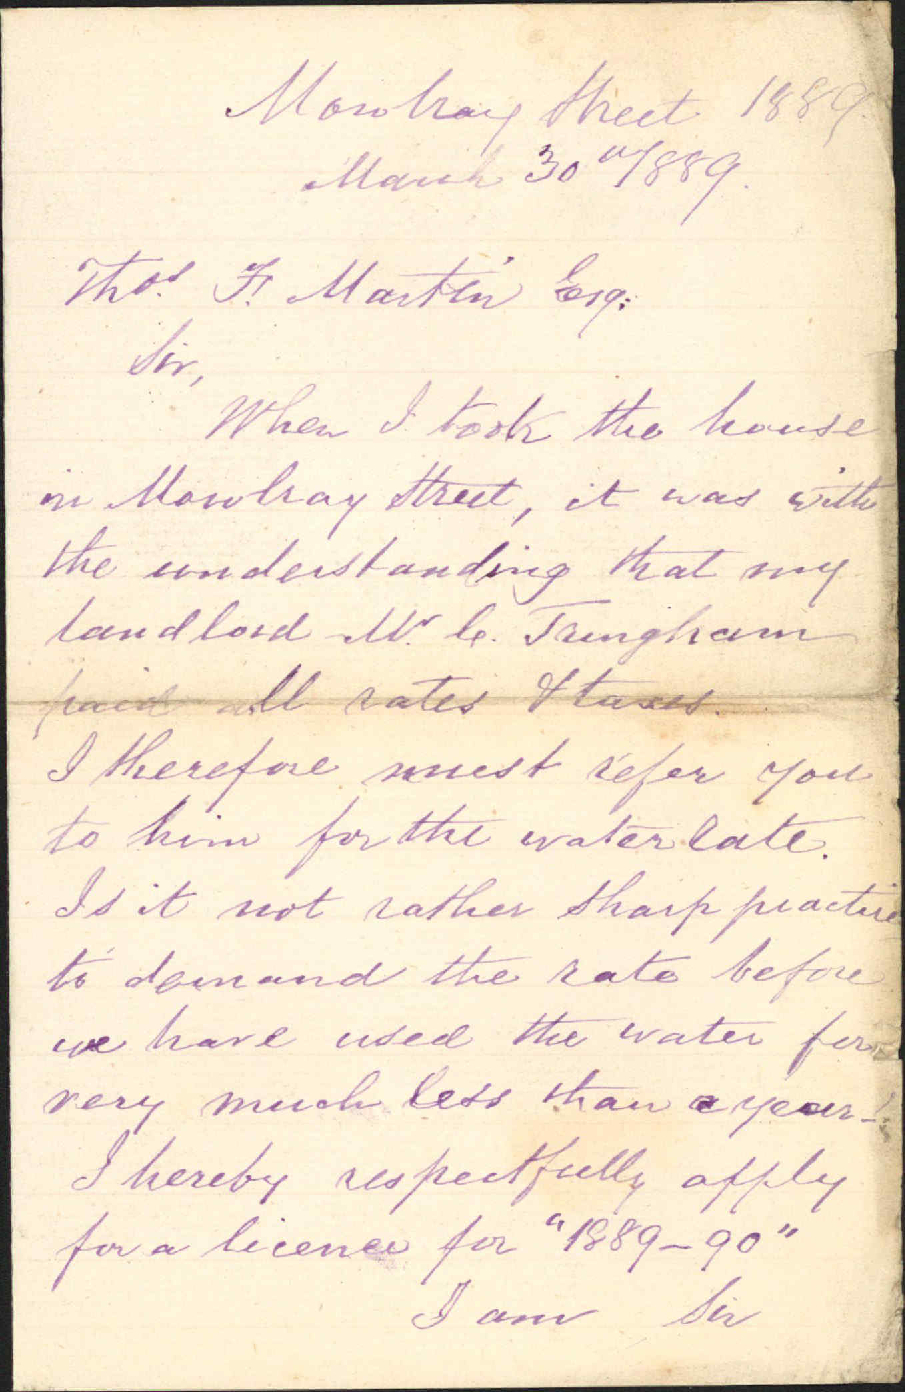 Mowbray Street 1889.
March 30th/889.
Thos. F. Martin Esq:
Sir,
When I took the house
in Mowbray Street, it was with
the understanding that my
landlord Mr. C. Tringham
paid all rates & taxes.
I therefore must refer you
to him for the water rate.
Is it not rather sharp practice
to demand the rate before
we have used the water for
very much less than a year-!
I hereby respectfully apply
for a licence for "1889-90"
I am Sir